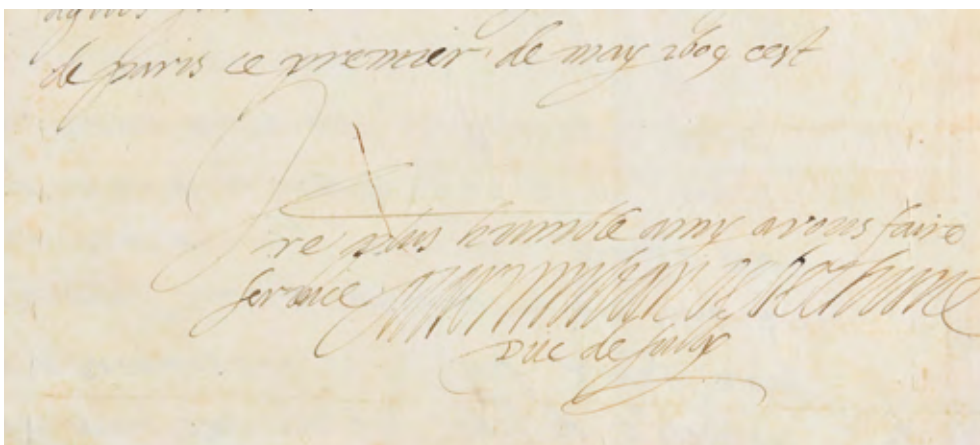 de paris ce premier de may 1609 cest
Vre plus humble amy a vous faire
service maximilian de bethune
Duc de Sully